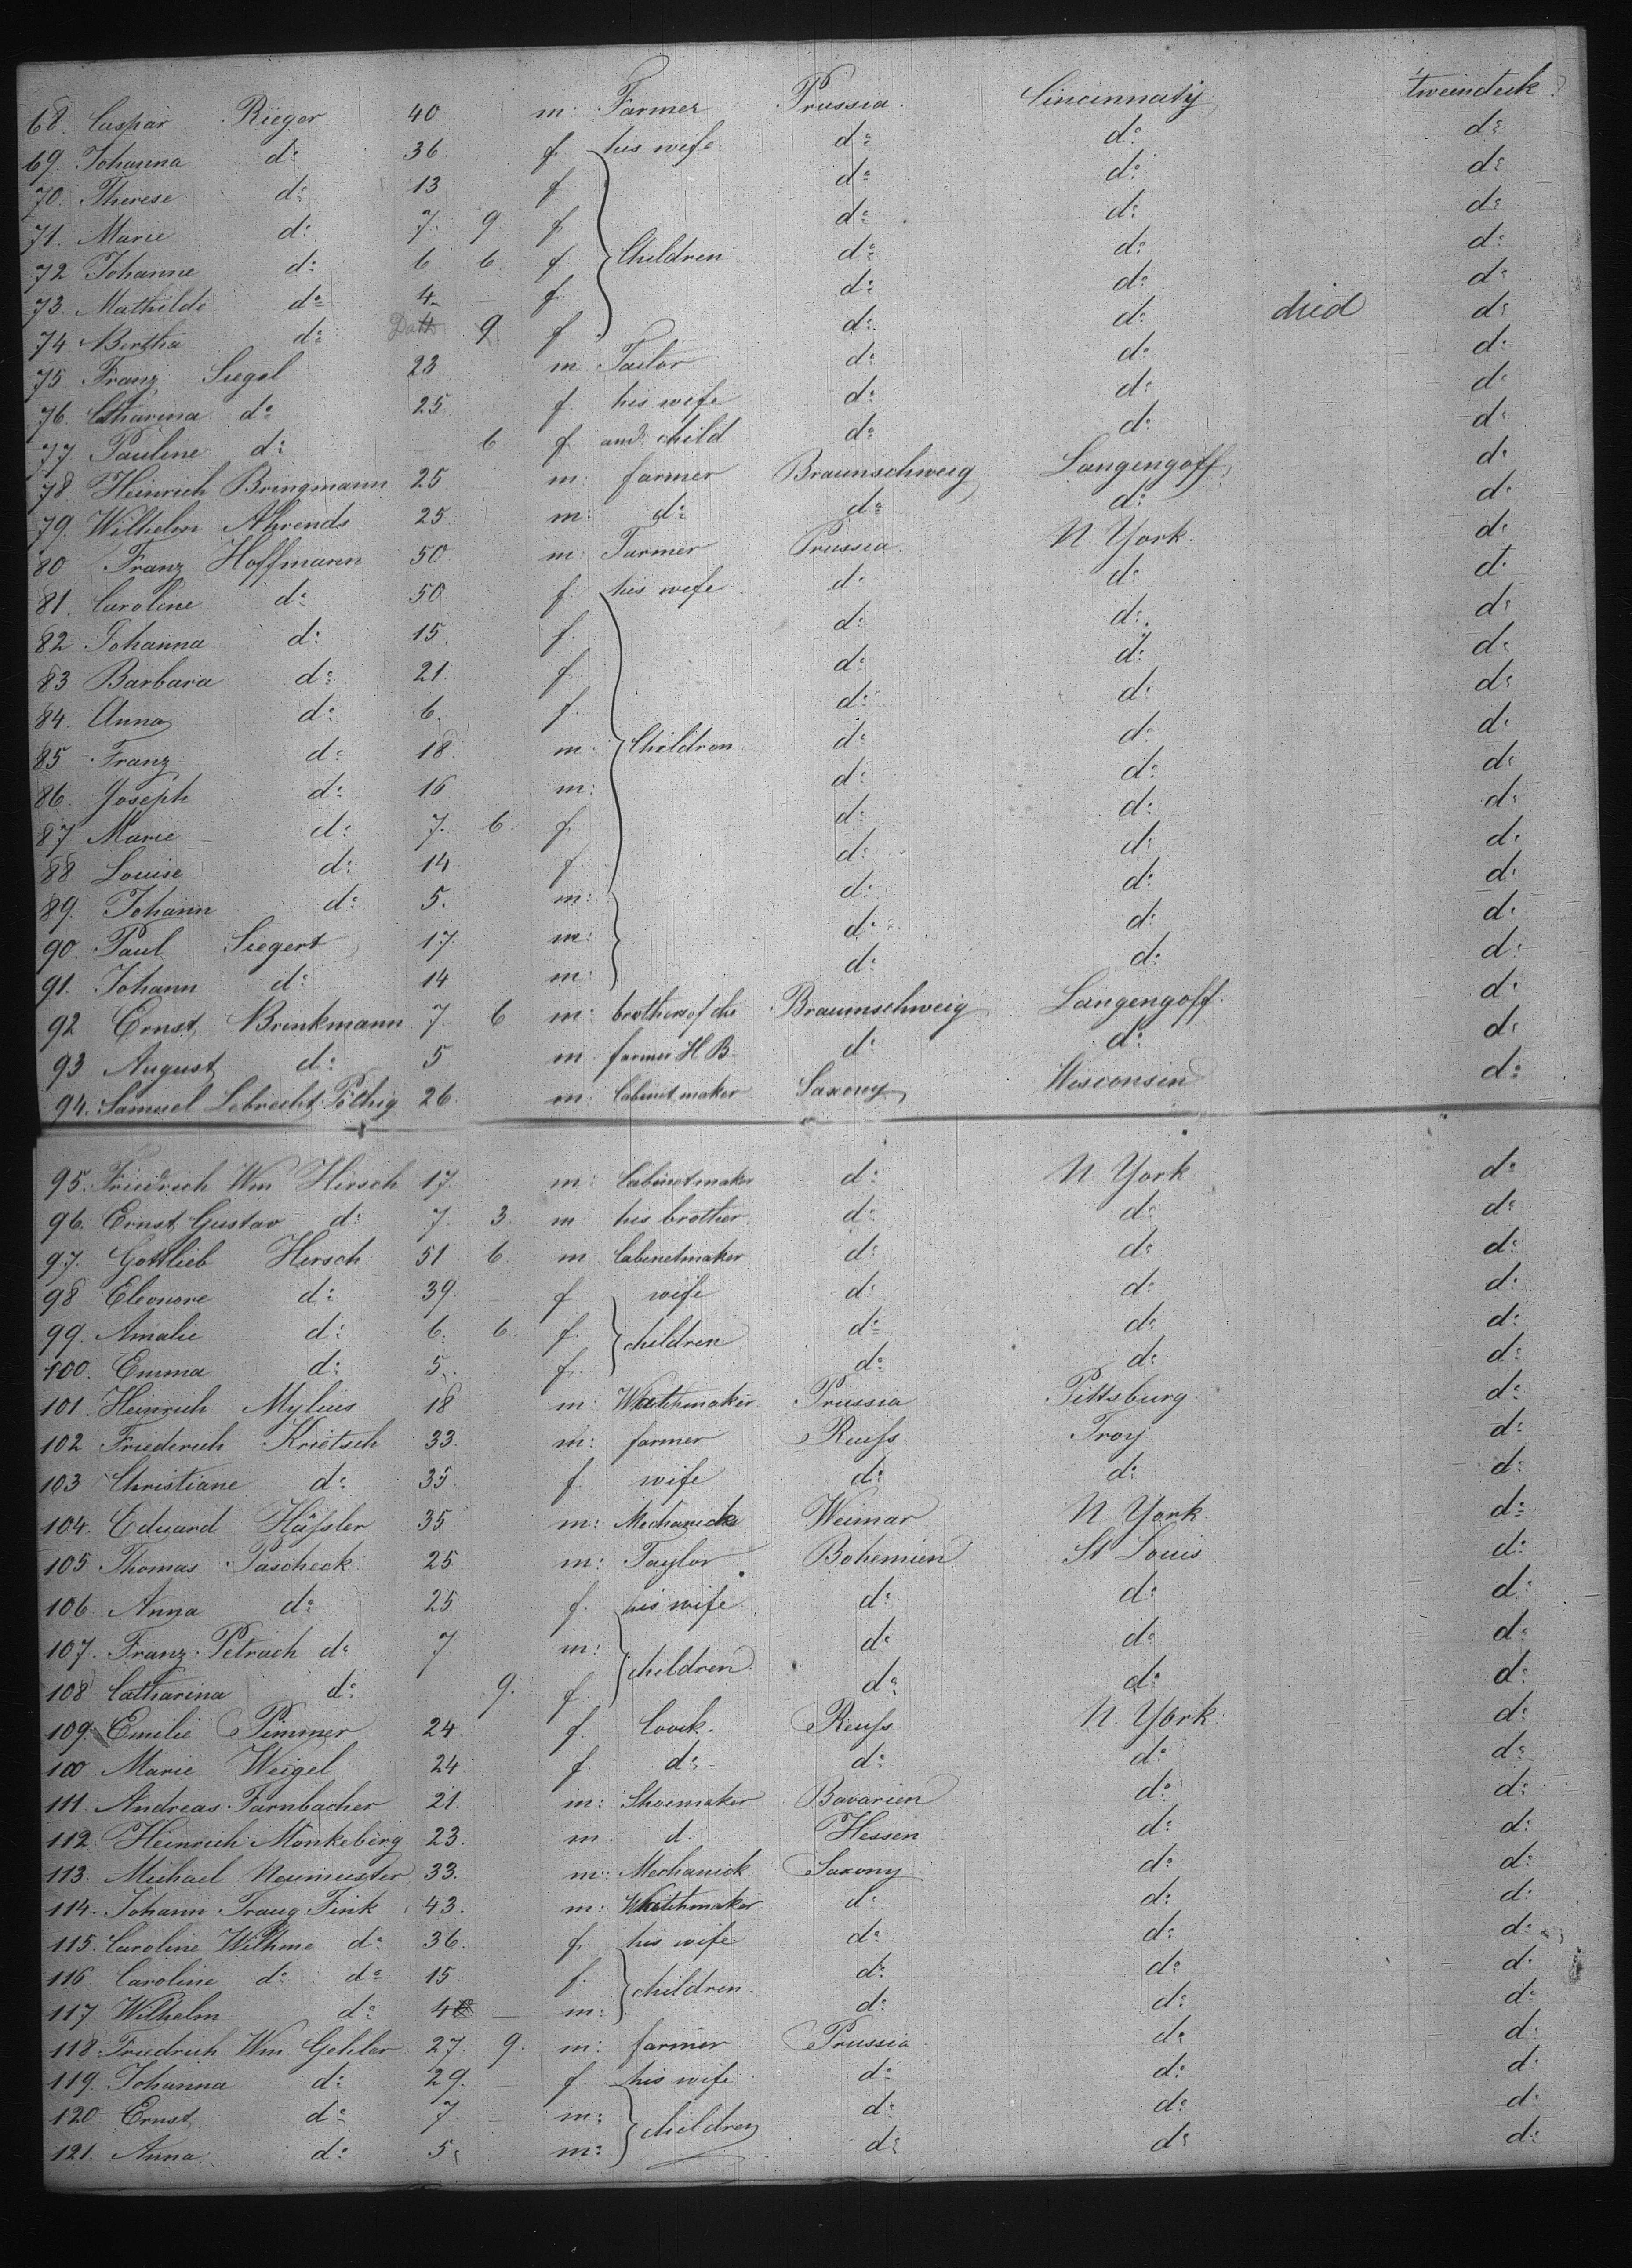 68. Caspar Rieger 40 m: Farmer Prussia. Cincinnaty tweendeck.
69. Johanna d: 36. f. his wife d: d: d:
70. Therese d: 13 f d: d: d:
71. Marie d: 7. 9 f d: d: d:
72 Johanne d: 6 6. f Children d: d: d:
73. Mathilde d: 4 – f. d: d: d:
74 Bertha d: 9 f d: d: died d:
75 Franz Siegel 23 m Tailor d: d: d:
76 Catharina d: 25 f. his wife d: d: d:
77. Pauline d: – 6 f. and child d: d: d:
78 Heinrich Bringmann 25 m: farmer Braunschweig Langengoff d:
79. Wilhelm Ahrends 25. m: d: d: d: d:
80 Franz Hoffmann 50 m: Farmer Prussia. N York. d:
81. Caroline d: 50 f. his wife d: d: d:
82 Johanna d: 15. f. d: d: d:
83 Barbara d: 21. f d: d: d:
84. Anna d: 6. f. d: d: d:
85 Franz d: 18. m: Children d: d: d:
86. Joseph d: 16 m: d: d: d:
87 Marie d: 7. 6. f. d: d: d:
88 Louise d: 14 f. d: d: d:
89. Johann d: 5. m: d: d: d:
90. Paul Siegert 17. m: d: d: d:
91. Johann d: 14 m: d: d: d:
92 Ernst Brinkmann 7 6 m: brothers of the Braunschweig Langengoff. d:
93 August d: 5 m. farmer H B. d: d: d:
94. Samuel Lebrecht Pöthig 26. m: Cabinetmaker Saxony Wisconsin d:
95. Friedrich Wm Hirsch 17. m: Cabinetmaker d: N York d:
96. Ernst Gustav d: 7. 3. m his brother d: d: d:
97. Gottlieb Hersch 51 6. m Cabinetmaker d: d: d:
98 Eleonore d: 39. f wife d: d: d:
99. Amalie d: 6. 6 f. children d: d: d:
100. Emma d: 5. f. d: d: d:
101. Heinrich Mylius 18 m: Watchmaker Prussia Pittsburg. d:
102 Friederich Krietsch 33. m: farmer Reuss Troy d:
103 Christiane d: 35. f. wife d: d: d:
104. Eduard Hässler 35 m: Mechanick Weimar N York. d:
105 Thomas Pascheck 25 m: Taylor Bohemien St Louis d:
106 Anna d: 25 f. his wife d: d: d:
107. Franz Petrach d: 7 m: children d: d: d:
108 Catharina d: 9. f. d: d: d:
109. Emilie Pimmer 24. f. Coock. Reuss N. York. d:
100 Marie Weigel 24 f d: d: d: d:
111. Andreas Farnbacher 21. m: Shoemaker Bavarien d: d:
112. Heinrich Monkeberg 23. m. d. Hessen d: d:
113. Michael Neumeister 33. m: Mechanick Saxony d: d:
114. Johann Traug Fink 43. m: Watchmaker d: d: d:
115. Caroline Wilhme d: 36. f. his wife d: d: d:
116 Caroline d: d: 15 f. children. d: d: d:
117 Wilhelm d: 4 – m: d: d: d:
118. Friedrich Wm. Gehler 27. 9. m: farmer Prussia d: d:
119. Johanna d: 29. – f. his wife d: d: d:
120 Ernst d: 7. m: children d: d: d:
121. Anna d: 5. m: d: d: d: